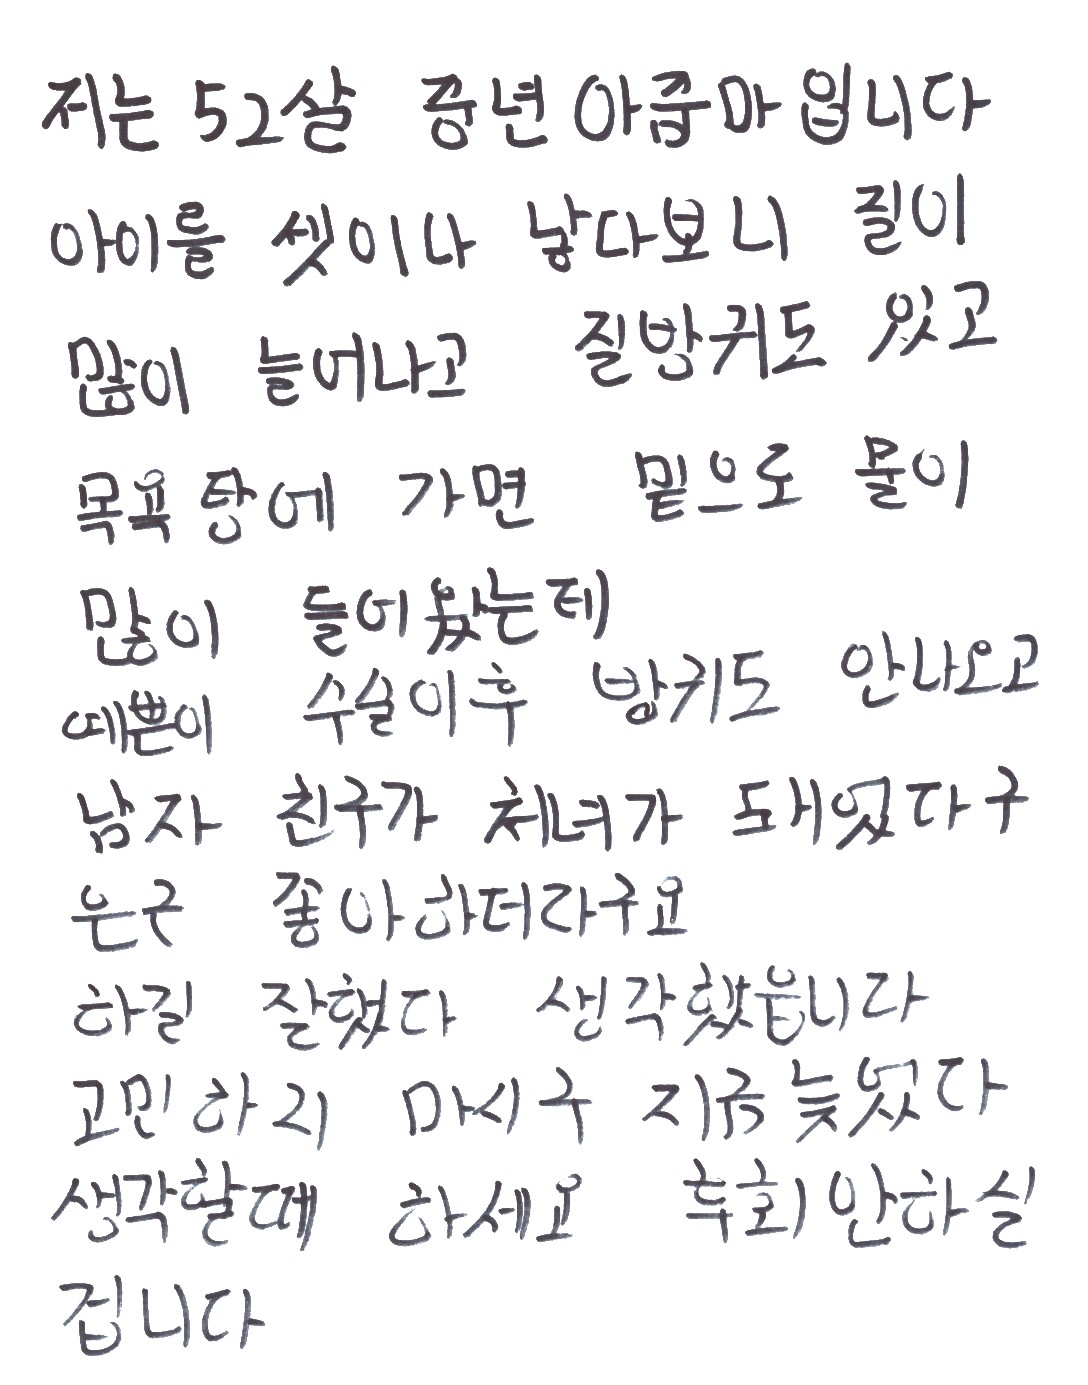 저는 52살 중년 아줌마 입니다
아이를 셋이나 낳다보니 질이
많이 늘어나고 질방귀도 있고
목욕탕에 가면 밑으로 물이
많이 들어왔는데
예쁜이 수술이후 방귀도 안나오고
남자 친구가 처녀가 돼었다구
은근 좋아하더라구요
하길 잘했다 생각했읍니다
고민하지 마시구 지금늦었다
생각할때 하세요 후회안하실
겁니다